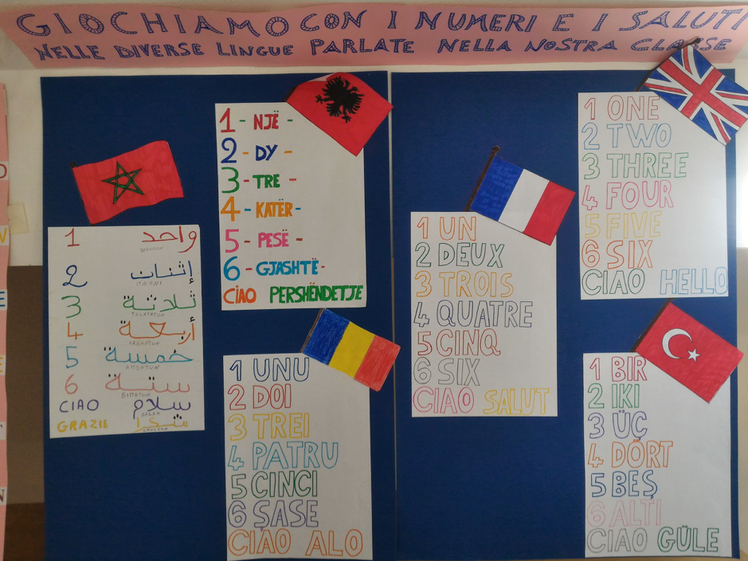 GIOCHIAMO CON I NUMERI E I SALUTI
NELLE DIVERSE LINGUE PARLATE NELLA NOSTRA CLASSE
1 واحد
2 إثنان
3 ثلاثة
4 أربعة
5 خمسة
6 ستة
CIAO سلام
GRAZIE شكرا
1 - NJË -
2 - DY -
3 - TRE -
4 - KATËR -
5 - PESË -
6 - GJASHTË -
CIAO PERSHËNDETJE
1 UNU
2 DOI
3 TREI
4 PATRU
5 CINCI
6 ŞASE
CIAO ALO
1 UN
2 DEUX
3 TROIS
4 QUATRE
5 CINQ
6 SIX
CIAO SALUT
1 ONE
2 TWO
3 THREE
4 FOUR
5 FIVE
6 SIX
CIAO HELLO
1 BIR
2 IKI
3 ÜÇ
4 DÖRT
5 BEŞ
6 ALTI
CIAO GÜLE